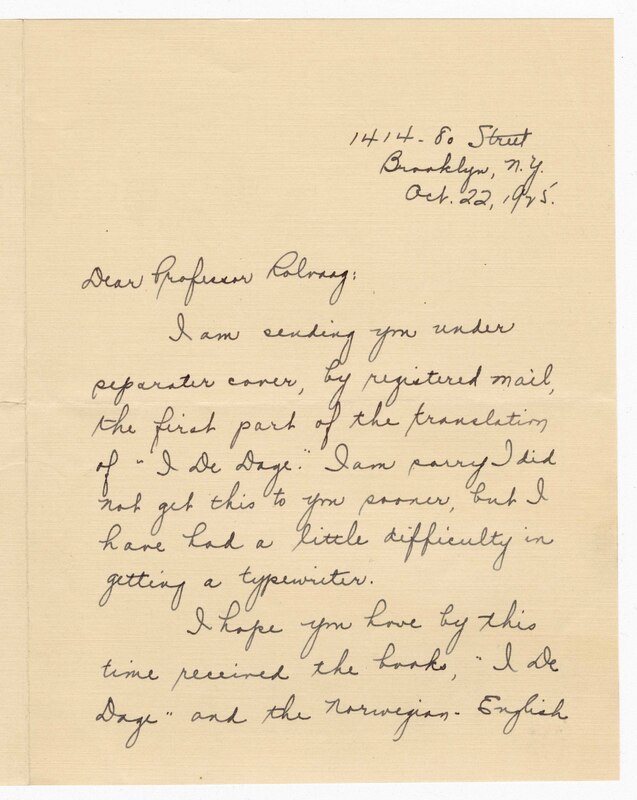 1414 - 80 Street
Brooklyn, N.Y.
Oct. 22, 1925.
Dear Professor Rolvaag:
I am sending you under
separater cover, by registered mail,
the first part of the translation
of "I De Dage." I am sorry I did
not get this to you sooner, but I
have had a little difficulty in
getting a typewriter.
I hope you have by this
time received the books, "I De
Dage" and the Norwegian - English